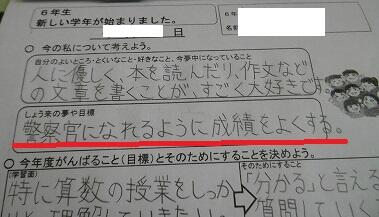 6年生
新しい学年が始まりました。
日
6年
名前
○ 今の私について考えよう。
自分のよいところ・とくいなこと・好きなこと、今夢中になっていること
人に優しく、本を読んだり、作文など
の文章を書くことが、すごく大好きです。
しょう来の夢や目標
警察官になれるように成績をよくする。
○ 今年度がんばること(目標)とそのためにすることを決めよう。
(学習面)
特に算数の授業をしっか
そのためにすること
「分かる」と言える
質問して